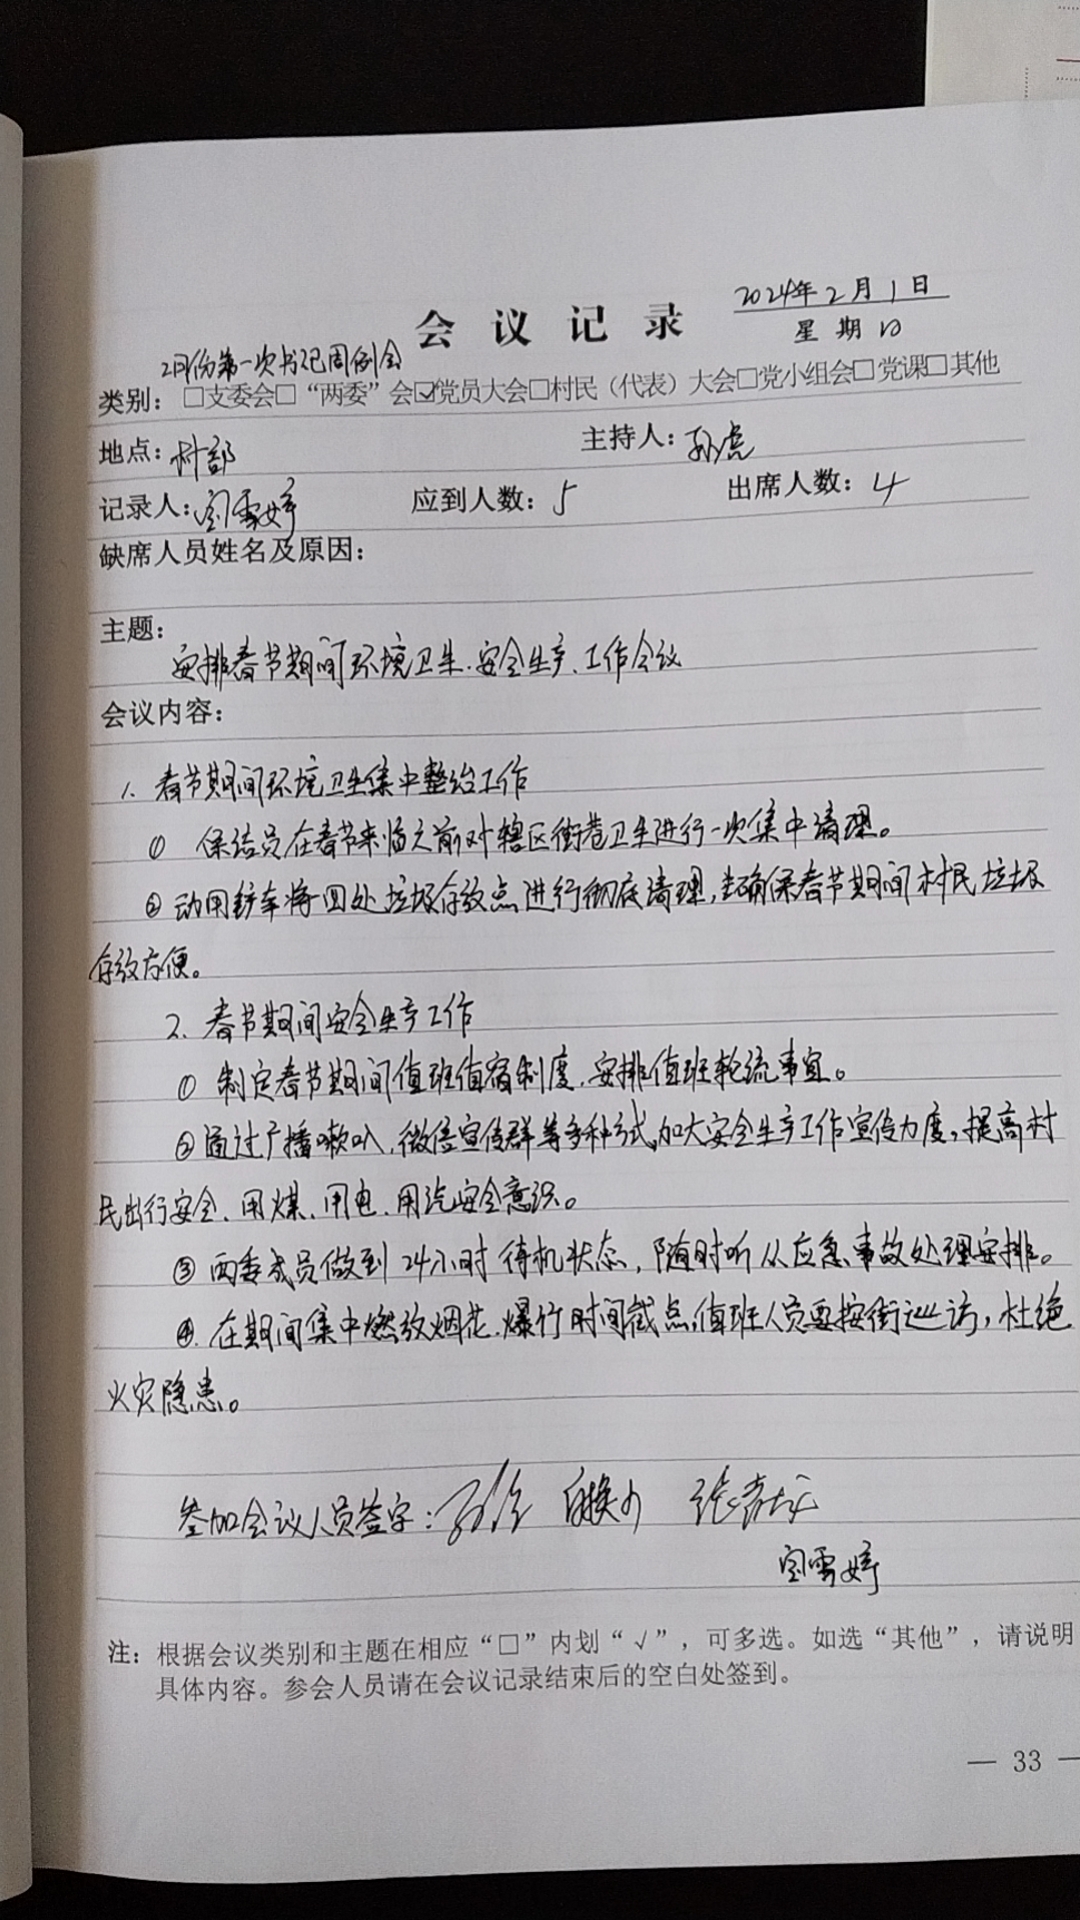 2024年2月1日
会议记录
星期四
2月份第一次书记周例会
类别：□支委会□“两委”会☑党员大会□村民（代表）大会□党小组会□党课□其他
地点：村部 主持人：孙虎
记录人：雪婷 应到人数：5 出席人数：4
缺席人员姓名及原因：
主题：
安排春节期间环境卫生、安全生产、工作会议
会议内容：
1. 春节期间环境卫生集中整治工作
① 保洁员在春节来临之前对辖区街巷卫生进行一次集中清理。
② 动用铲车将四处垃圾存放点进行彻底清理，确保春节期间村民垃圾
存放方便。
2. 春节期间安全生产工作
① 制定春节期间值班值宿制度、安排值班轮流事宜。
② 通过广播喇叭、微信宣传群等多种方式，加大安全生产工作宣传力度，提高村
民出行安全、用煤、用电、用汽安全意识。
③ 两委成员做到24小时待机状态，随时听从应急事故处理安排。
④. 在期间集中燃放烟花、爆竹时间截点，值班人员要按街巡访，杜绝
火灾隐患。
参加会议人员签字：
雪婷
注：根据会议类别和主题在相应“□”内划“√”，可多选。如选“其他”，请说明
具体内容。参会人员请在会议记录结束后的空白处签到。
— 33 —